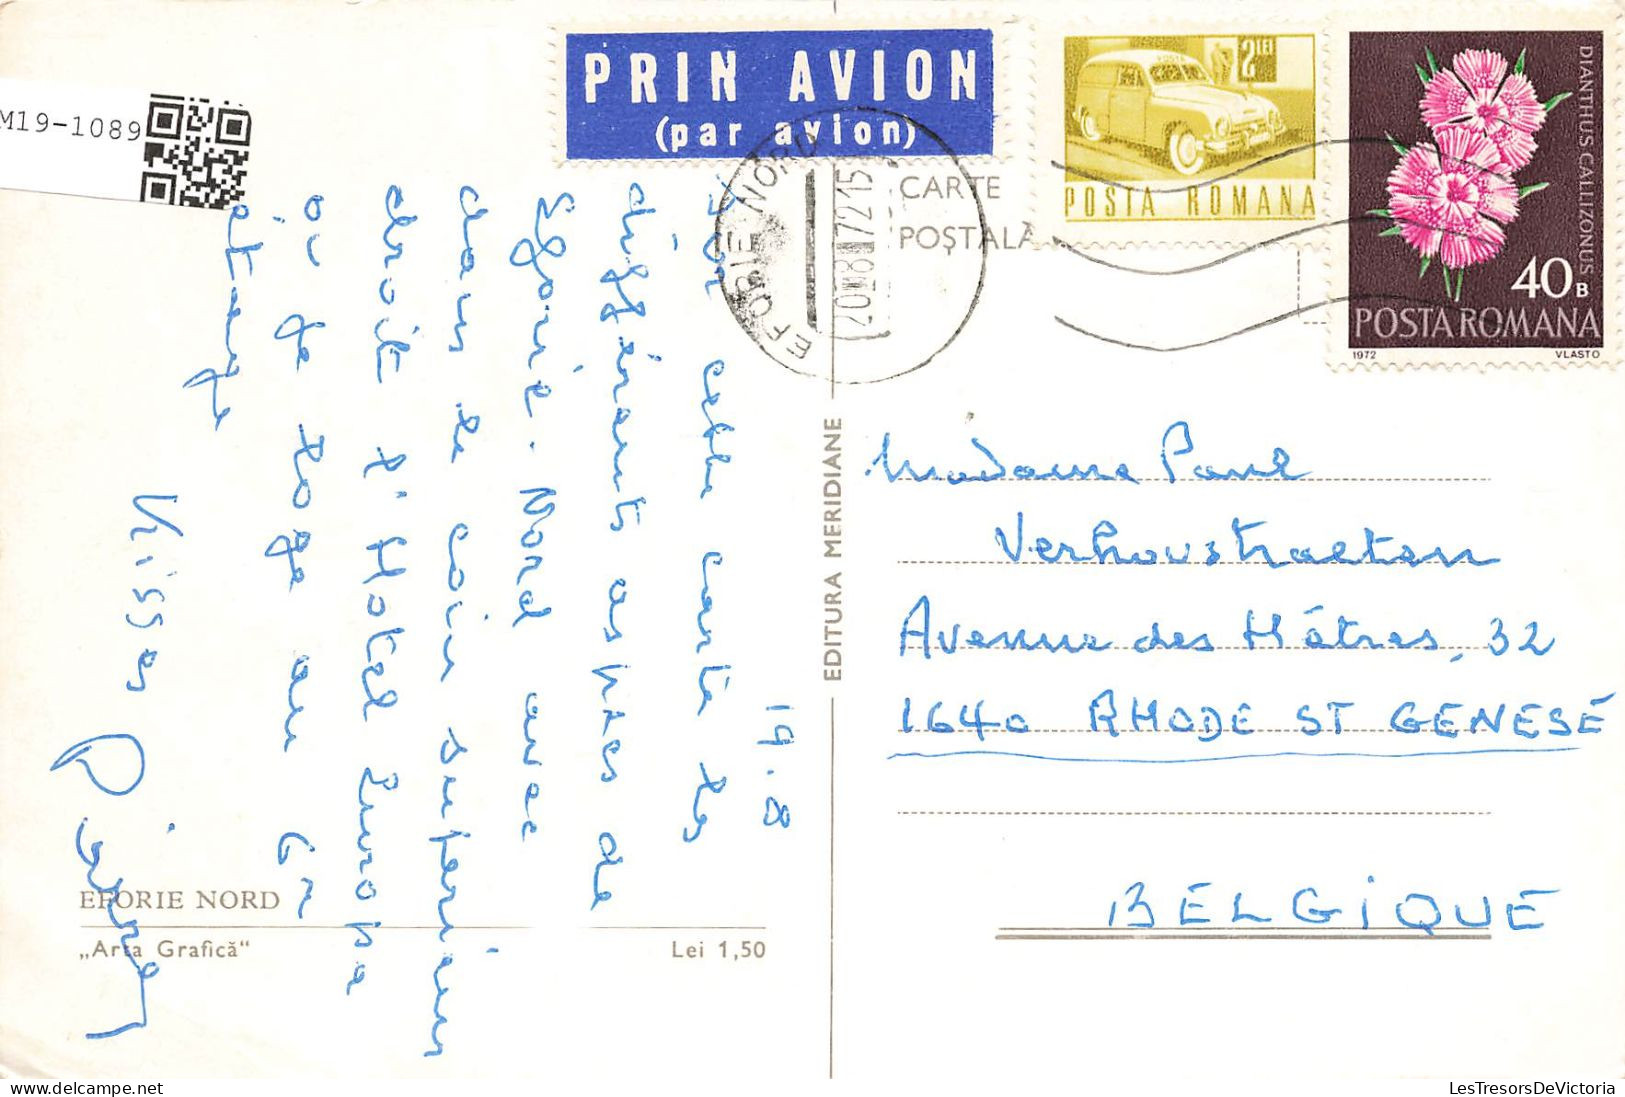 M19-1089
PRIN AVION
(par avion)
2 LEI
POSTA ROMANA
DIANTHUS CALLIZONUS
40 B
POSTA ROMANA
1972 VLASTO
EFORIE NORD
20 8 72 15
CARTE
POȘTALĂ
19.8
Sur cette carte les
différents aspects de
Eforie-Nord avec
dans le coin supérieur
droit l'Hotel Europa
où je loge au 6e
étage
Kisses
EDITURA MERIDIANE
Madame Paul
Verhoustraeten
Avenue des Hêtres, 32
1640 RHODE ST GENESE
BELGIQUE
EFORIE NORD
„Arta Grafică“ Lei 1,50
LesTresorsDeVictoria
delcampe.net